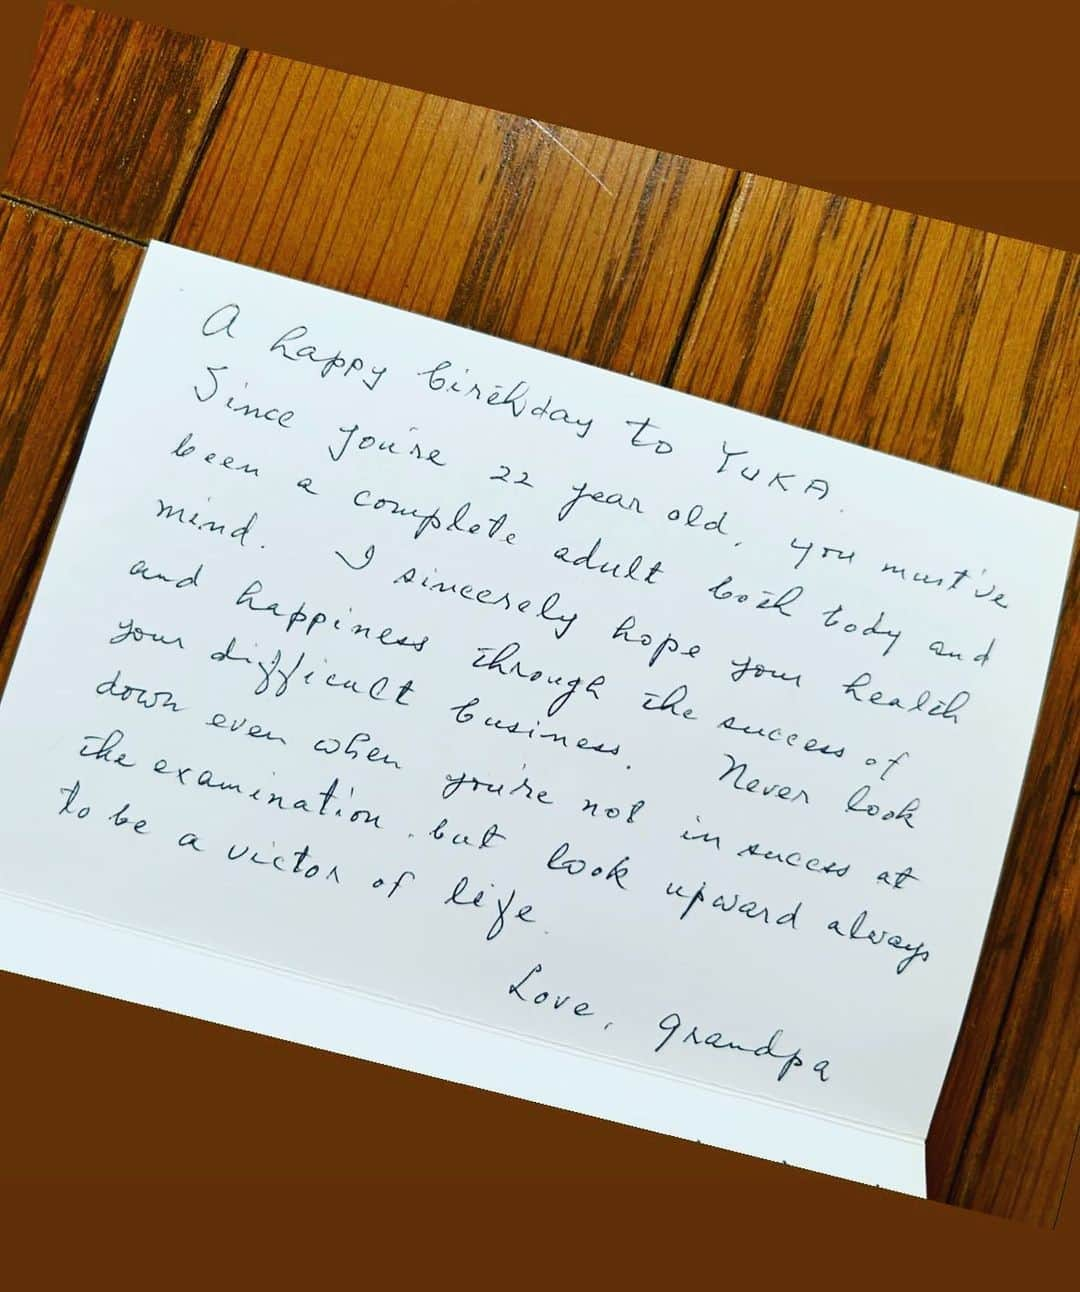 A happy birthday to YUKA.
Since you're 22 year old, you must've
been a complete adult both body and
mind. I sincerely hope your health
and happiness through the success of
your difficult business. Never look
down even when you're not in success at
the examination. but look upward always
to be a victor of life.
Love, grandpa